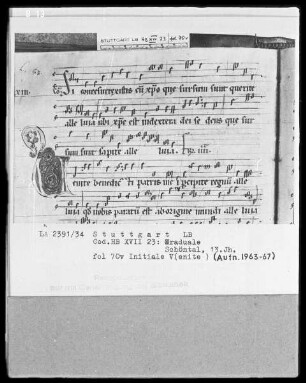 STUTTGART LB HB XVII 23 fol. 70v
XIII.
Si consurrexistis cū xp̄o que sursum sunt querite
alle luia ubi xp̄c est indextera dei se dens que sur
sum sunt sapite alle luia. Fra. IIII.
enite benedicti patris mei percipite regnū alle
luia quod vobis paratū est ab origine mundi alle luia
LA 2391/34 Stuttgart LB
Cod.HB XVII 23: Graduale
Schöntal, 13.Jh.
fol 70v Initiale V(enite ) (Aufn.1963-67)